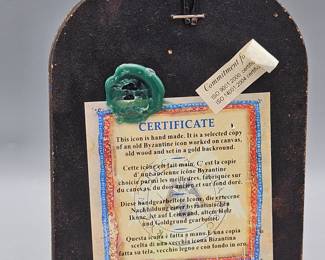 Commitment fo
ISO 9001:2000 certifi
ISO 14001:2004 certifi
CERTIFICATE
This icon is hand made. It is a selected copy
of an old Byzantine icon worked on canvas,
old wood and set in a gold background.
Cette icône est fait main. C' est la copie
d' une ancienne icône Byzantine
choisie parmi les meilleures, fabriquée sur
du canevas, du bois ancien et sur fond doré.
Diese handgearbeitete Ikone, die erneute
Nachbildung einer byzantinischen
Ikone, ist auf Leinwand, altem Holz
und Goldgrund gearbeitet.
Questa icona è fatta a mano. E una copia
scelta di una vecchia icona Bizantina
fatta su tela, vecchio legno e con fondo in oro.